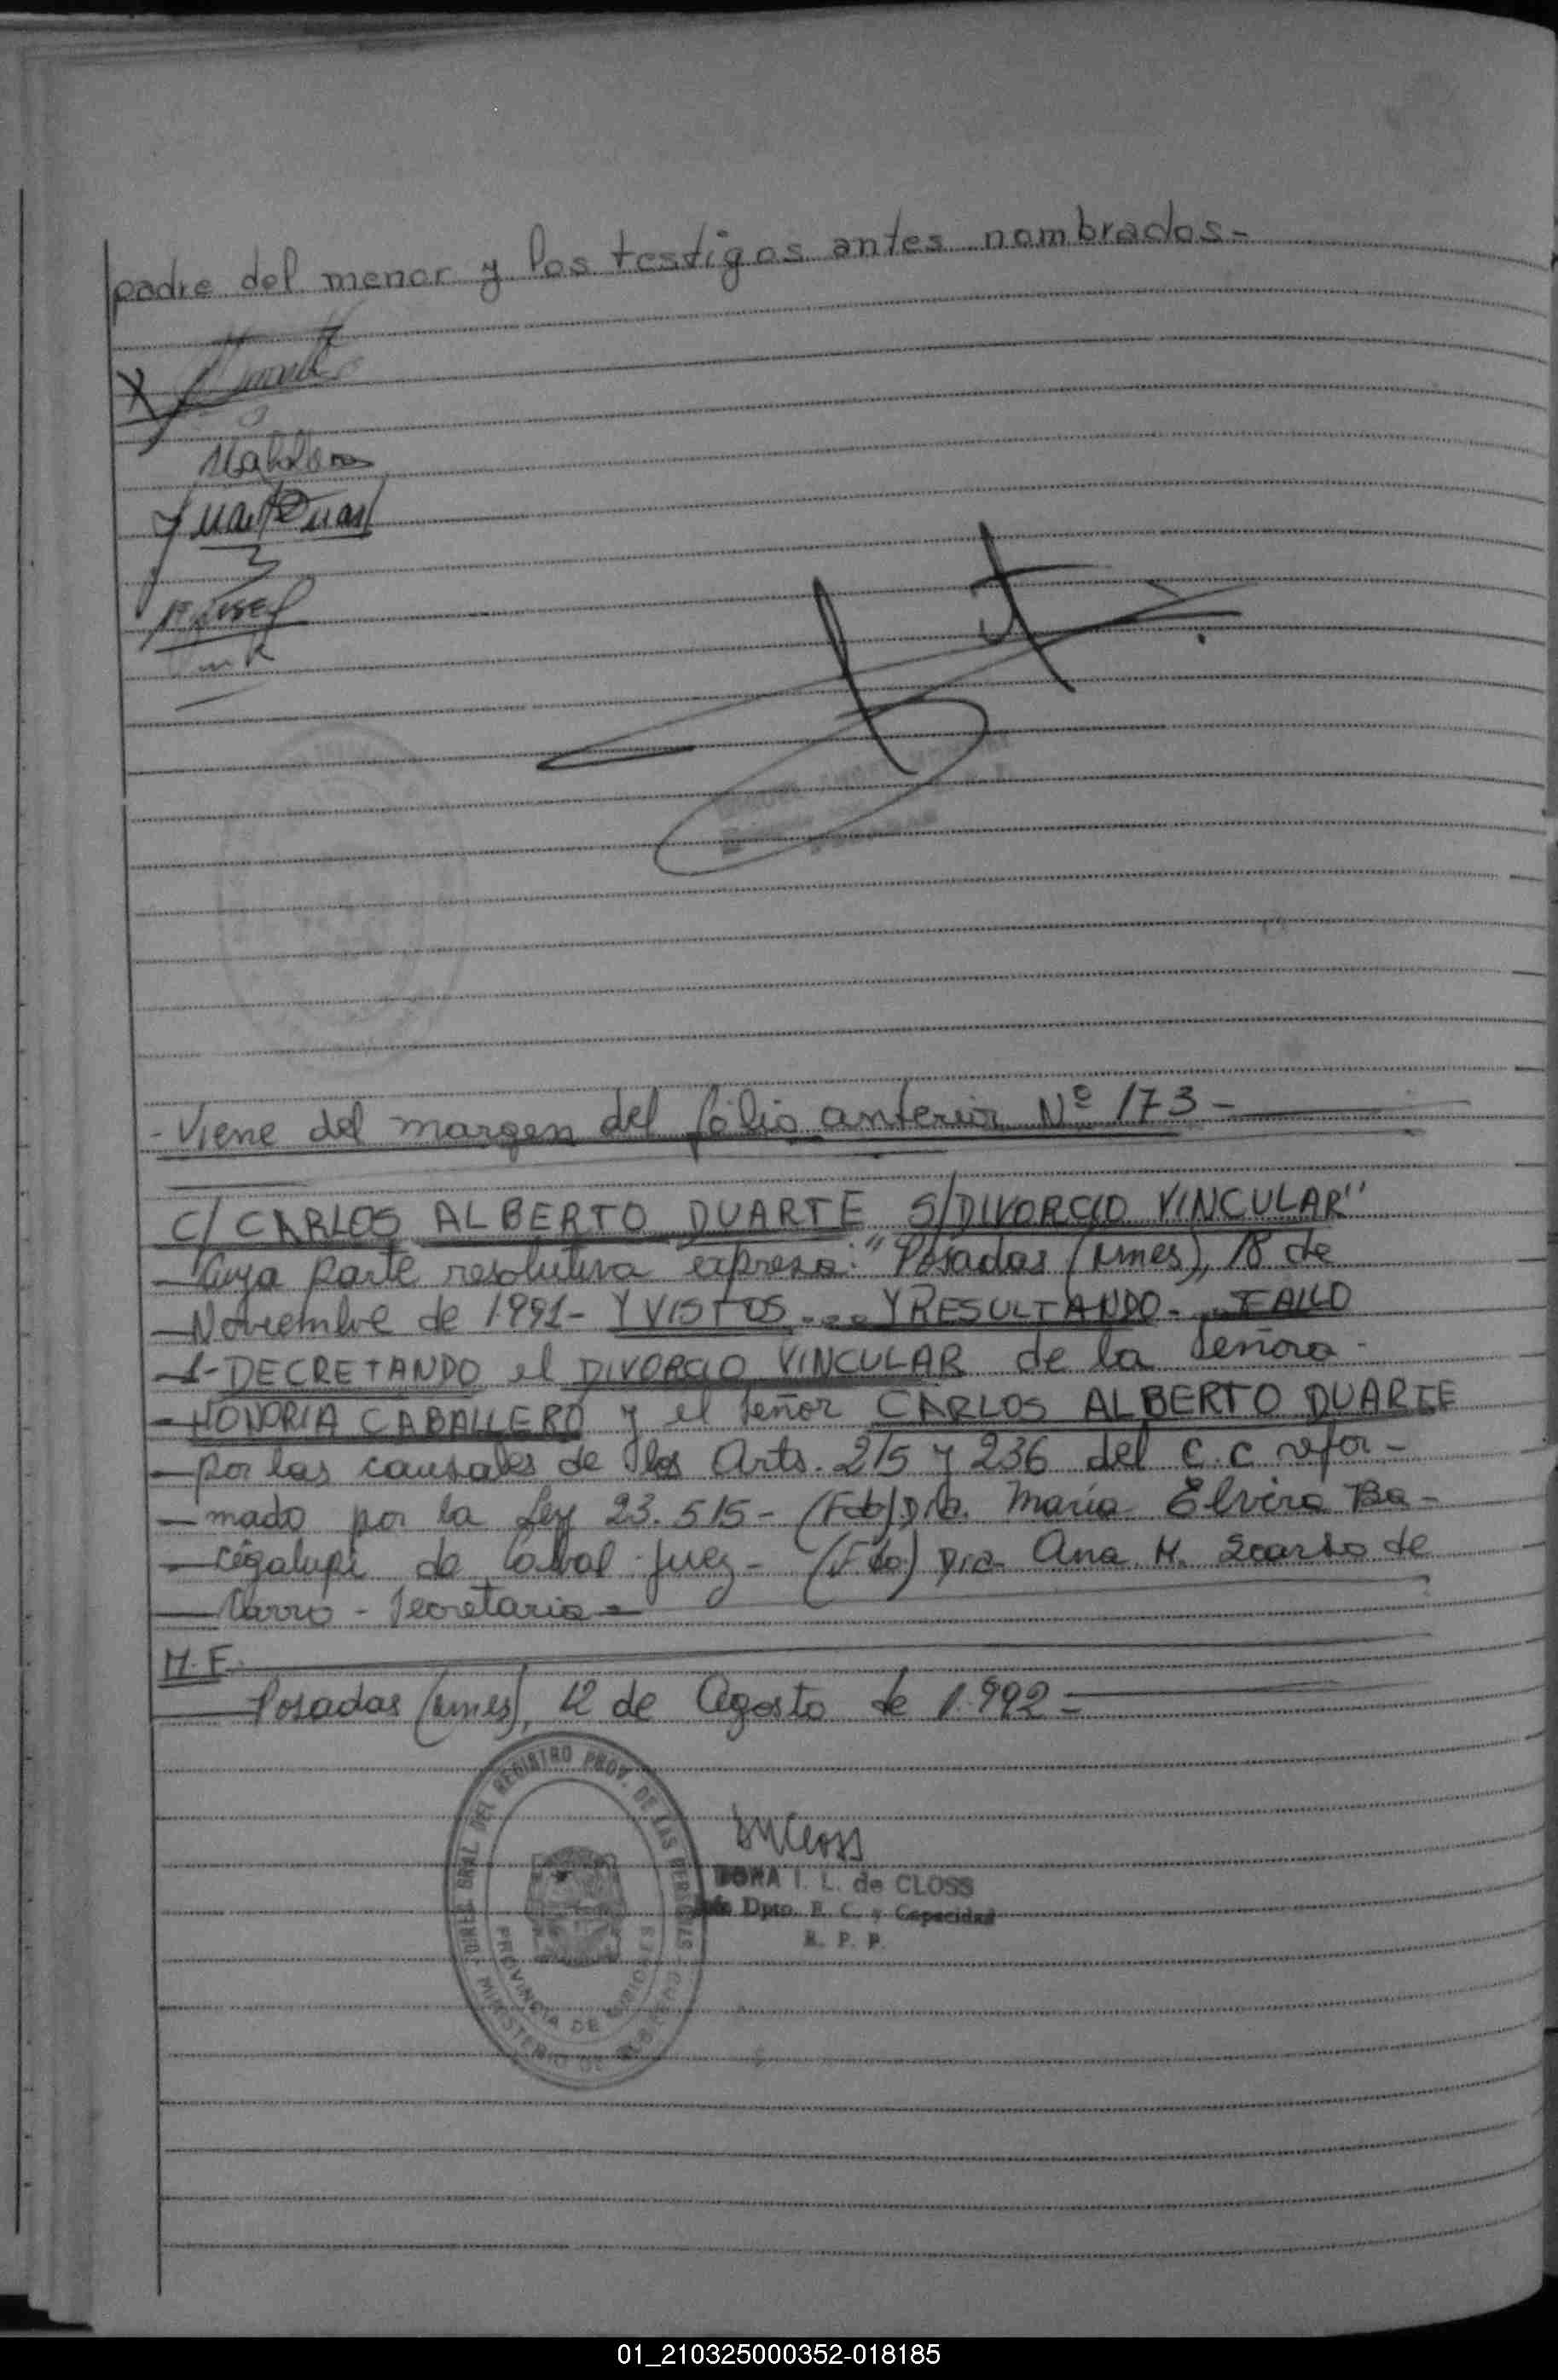 padre del menor y los testigos antes nombrados-
X
Juan Duart
- Viene del margen del folio anterior Nº 173 -
C/ CARLOS ALBERTO DUARTE S/DIVORCIO VINCULAR"
Cuya parte resolutiva expresa: "Posadas (Mnes), 18 de
Noviembre de 1991- Y VISTOS ... Y RESULTANDO- .. FALLO
-1- DECRETANDO el DIVORCIO VINCULAR de la Señora -
- HONORIA CABALLERO y el Señor CARLOS ALBERTO DUARTE
- por las causales de los Arts. 215 y 236 del C.C refor-
- mado por la Ley 23.515- (Fdo) Dra. María Elvira Ba-
- cigalupi de Juez- (Fdo) Dra- Ana M. de
- Secretaria-
M.F.
Posadas (Mnes), 12 de Agosto de 1.992-
DIREC. GRAL. DEL REGISTRO PROV. DE LAS PERSONAS
PROVINCIA DE MISIONES
MINISTERIO DE GOBIERNO
I. L. de CLOSS
Jefe Dpto. R. C. y Capacidad
R. P. P.
01_210325000352-018185